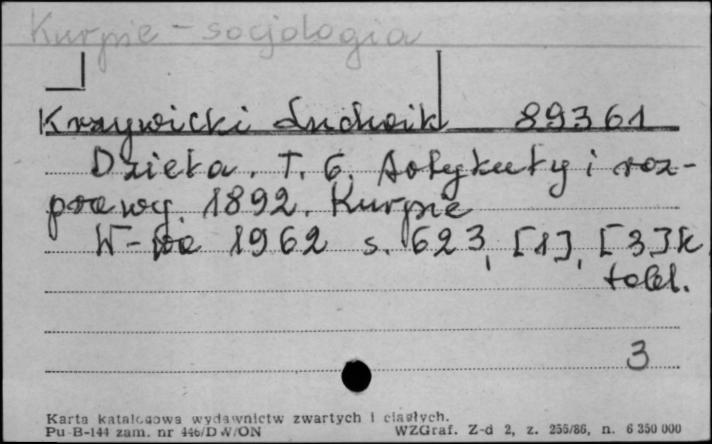 Kurpie - socjologia
Krzywicki Ludwik 89361
Dzieła. T. 6. Artykuły i roz-
prawy. 1892. Kurpie
W-wa 1962 s. 623, [1], [3] k.
tabl.
3
Karta katalogowa wydawnictw zwartych i ciągłych.
Pu-B-144 zam. nr 446/DW/ON WZGraf. Z-d 2, z. 256/86, n. 6 350 000